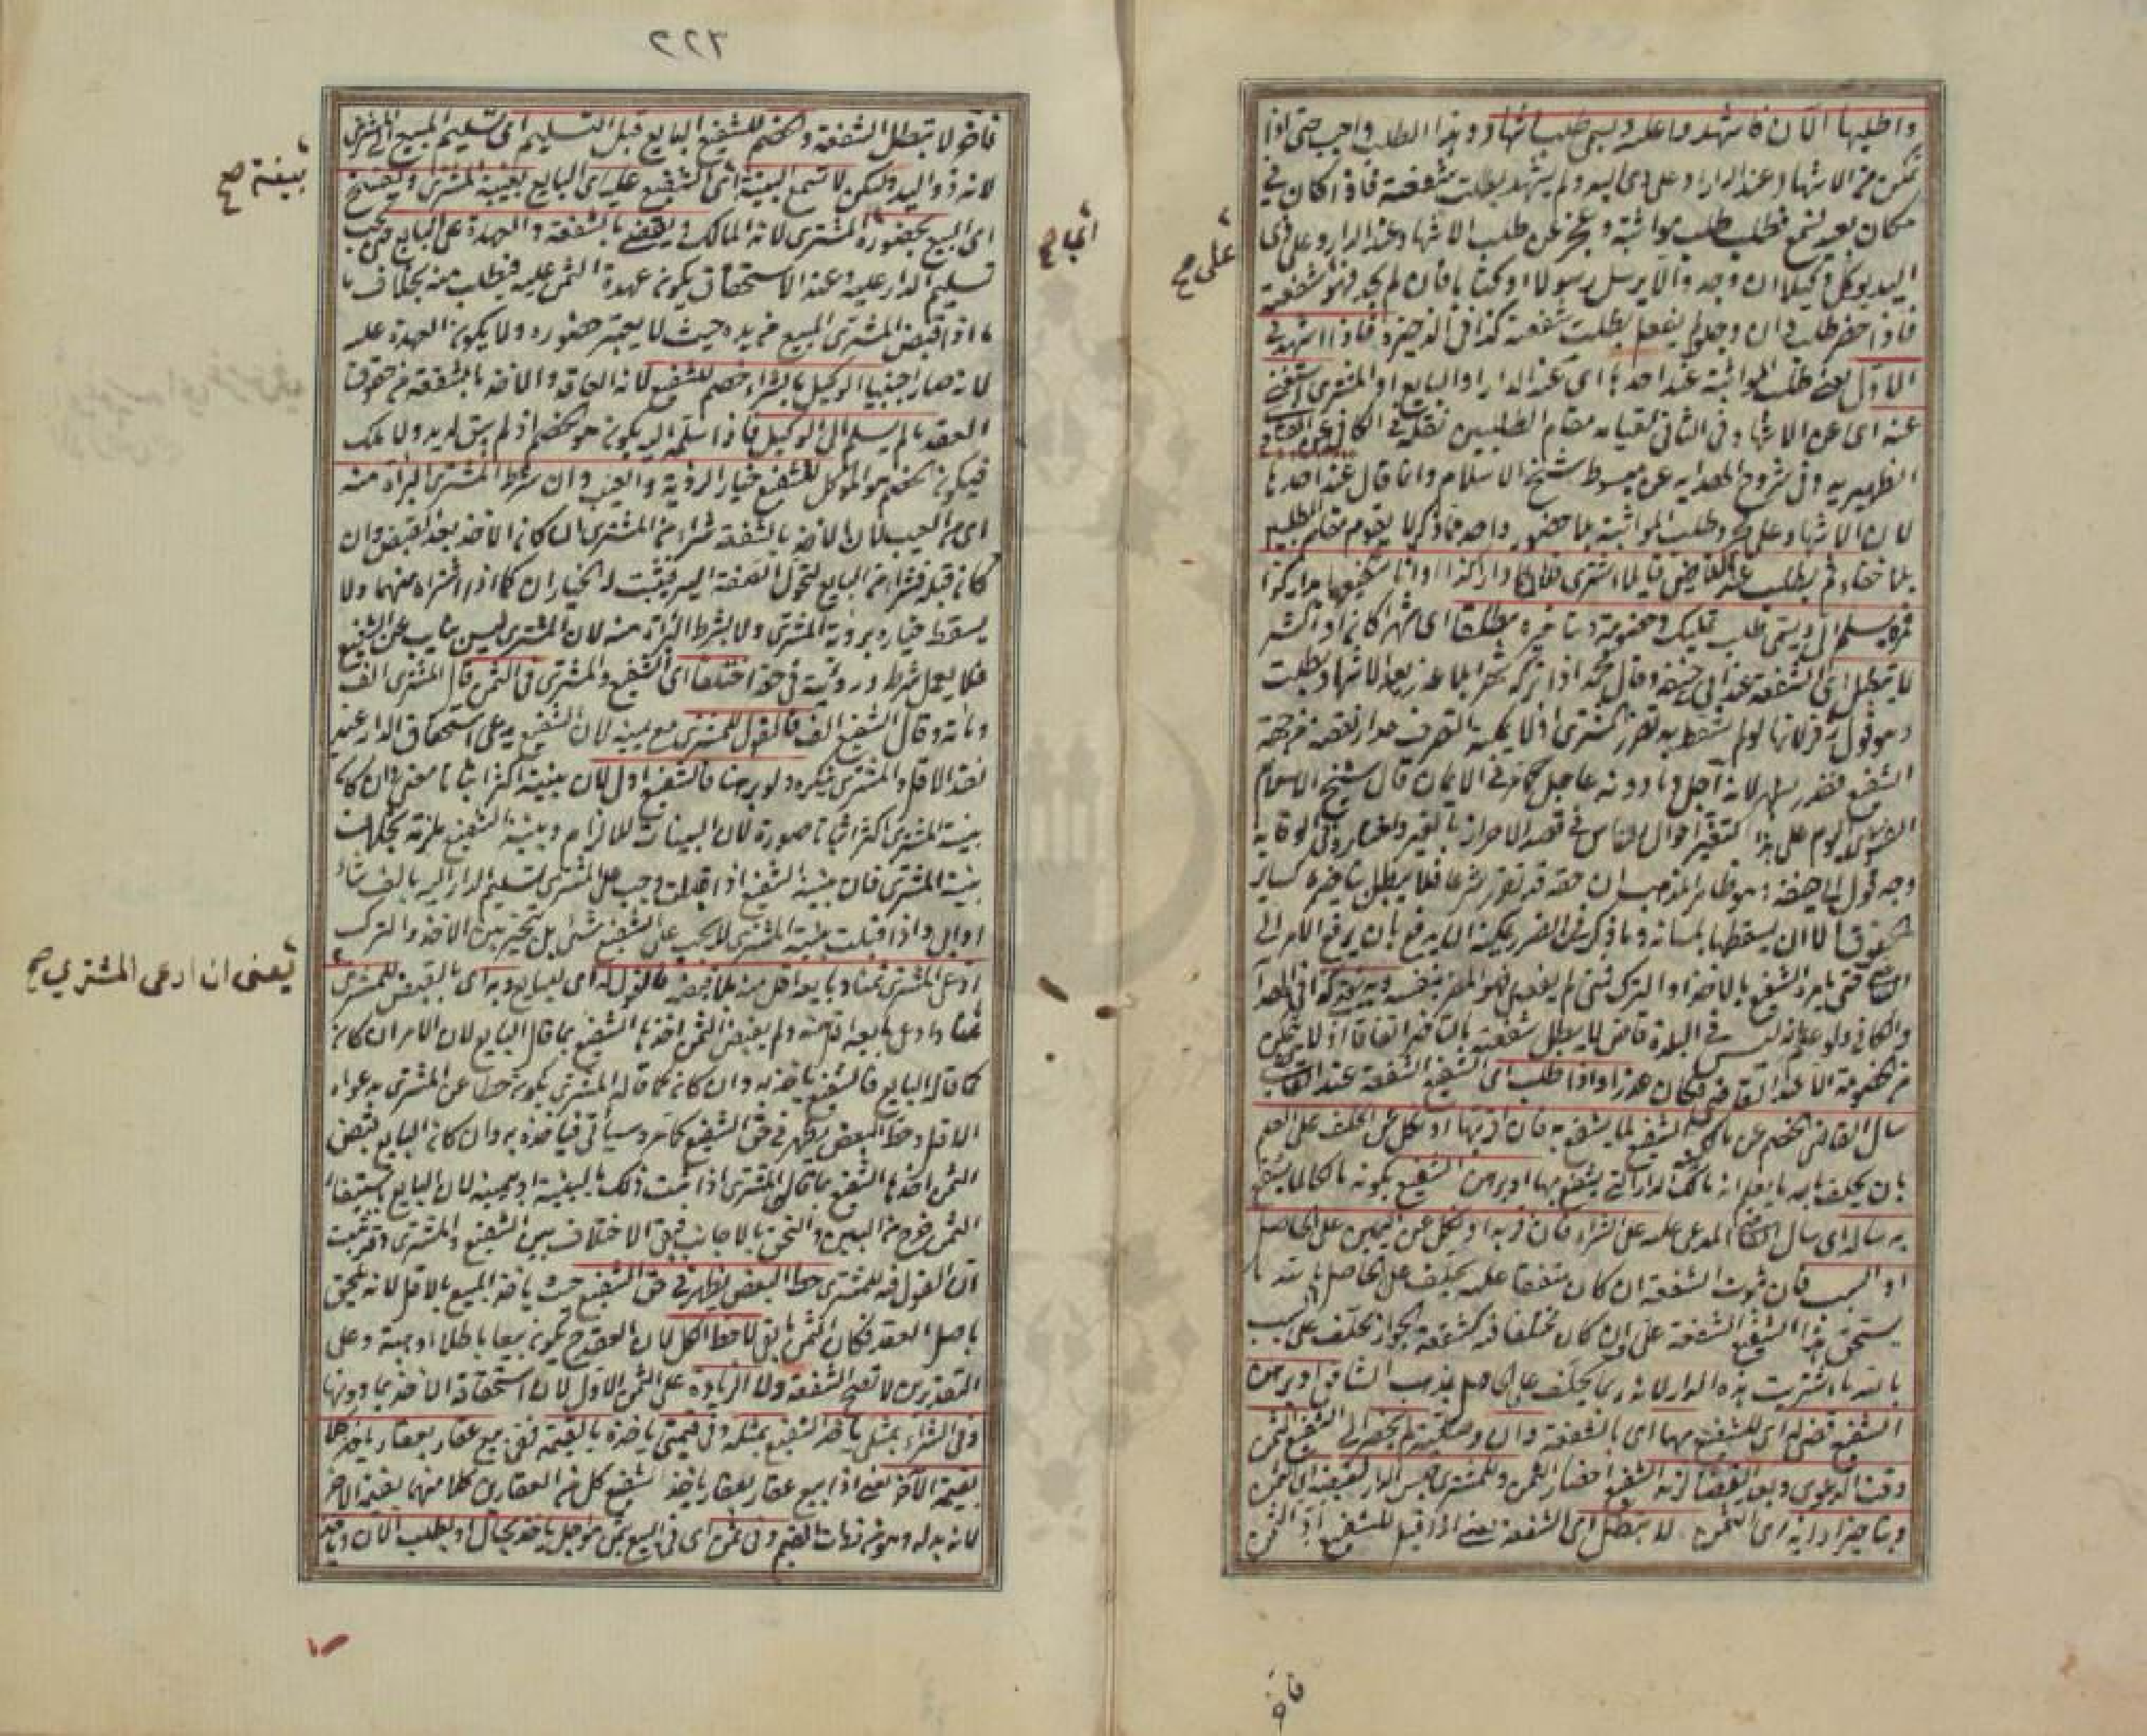 واطلبها الآن فاشهدوا عليه ويسمى طلب اشهاد وهذا الطلب واجب حتى اذا
تمكن من الاشهاد عند الدار او على ذى اليد ولم يشهد بطلت شفعته فاذا كان في
مكان بعيد فسمع فطلب طلب مواثبة وعجز عن طلب الاشهاد عند الدار وعلى ذى
اليد يوكل وكيلا ان وجد والا يرسل رسولا او كتابا فان لم يجد فهو على شفعته
فاذا حضر طلب وان وجد ولم يفعل بطلت شفعته كذا فى الذخيرة فاذا اشهد فى
الاول يعنى طلب المواثبة عند احدها اى عند الدار او البايع او المشترى استغنى
عنه اى عن الاشهاد فى الثانى لقيامه مقام الطلبين نقله فى الكافى عن الفتاوى
الظهيرية وفى شروح الهداية عن مبسوط شيخ الاسلام وانما قال عند احدها
لان الاشهاد على مجرد طلب المواثبة بلا حضور واحد مما ذكر لا يقوم مقام الطلبين
بلا خفاء ثم يطلب عند القاضى قايلا اشترى فلان دار كذا وانا شفيعها بدار كذا
فمره يسلم الى ويسمى طلب تمليك وخصومة وبتاخيره مطلقا اى شهرا كان او اكثر
لا تبطل اى الشفعة عند ابى حنيفة وقال محمد اذا تركه شهرا بلا عذر بعد الاشهاد بطلت
وهو قول زفر لانها لو لم تسقط به تضرر المشترى اذ لا يمكنه التصرف حذار نقضه من جهة
الشفيع فقدر بشهر لانه آجل وما دونه عاجل كما مر فى الايمان قال شيخ الاسلام
الفتوى اليوم على هذا لتغير احوال الناس فى قصد الاضرار بالغير واختاره فى الوقاية
وجه قول ابى حنيفة وهو ظاهر المذهب ان حقه قد تقرر شرعا فلا يبطل بتاخيره كساير
الحقوق الا ان يسقطها بلسانه وما ذكر من الضرر يمكنه ان يدفع بان يرفع الامر الى
القاضى حتى يامر الشفيع بالاخذ او الترك فمتى لم يفعل فهو المضر بنفسه وبه يفتى كذا فى الهداية
والكافى ولو علم انه ليس فى البلدة قاض لا يبطل شفعته بالتاخير اتفاقا اذ لا يتمكن
من الخصومة الا عند القاضى فكان عذرا واذا طلب اى الشفيع الشفعة عند القاضى
سال القاضى الخصم عن مالكية الشفيع لما يشفع به فان اقر بها او نكل عن الحلف على العلم
بان يحلف بالله ما يعلم انه مالك الدار التى يشفع بها او برهن الشفيع بكونه مالكا لما يشفع
به ساله اى سال القاضى المدعى عليه على الشراء فان اقر به او نكل عن اليمين على الحاصل
او السبب فان ثبوت الشفعة ان كان متفقا عليه يحلف على الحاصل بالله ما
يستحق هذا الشفيع الشفعة على وان كان مختلفا فيه كشفعة الجوار يحلف على السبب
بالله ما اشتريت هذه الدار لانه ربما يحلف على الحاصل بمذهب الشافعى او برهن
الشفيع قضى له اى للشفيع بها اى بالشفعة وان وصلية لم يحضر اى الشفيع الثمن
وقت الدعوى وبعد القضاء لزم الشفيع احضار الثمن وللمشترى حبس الدار لقبضه اى الثمن
وبتاخير ادائه اى الثمن لا تبطل اى الشفعة يعنى اذا قيل للشفيع اد الثمن
على صح
فاخر
٦٢٢
فاخر لا تبطل الشفعة والخصم للشفيع البايع قبل التسليم اى تسليم المبيع الى المشترى
لانه ذو اليد ولكن لا تسمع البينة اى الشفيع عليه اى البايع بغيبة المشترى ويفسخ
اى البيع بحضوره اى المشترى لانه المالك ويقضى بالشفعة والعهدة على البايع حتى يجب
تسليم الدار عليه وعند الاستحقاق يكون عهدة الثمن عليه فيطلب منه بخلاف ما
اذا قبض المشترى المبيع من يده حيث لا يعتبر حضوره ولا يكون العهدة عليه
لانه صار اجنبيا الوكيل بالشراء خصم للشفيع لانه العاقد والاخذ بالشفعة من حقوق
العقد ما لم يسلم الى الموكل فاذا سلمه اليه يكون هو الخصم اذ لم يبق له يد ولا ملك
فيكون الخصم هو الموكل للشفيع خيار الرؤية والعيب وان شرط المشترى البراءة منه
اى من العيب لان الاخذ بالشفعة شراء من المشترى ان كان الاخذ بعد القبض وان
كان قبله فشراء من البايع لتحول الصفقة اليه فيثبت له الخياران كما اذا اشتراه منهما ولا
يسقط خياره برؤية المشترى ولا بشرط البراءة منه لان المشترى ليس بنايب عن الشفيع
فلا يعمل شرطه ورؤيته فى حقه اختلفا اى الشفيع والمشترى فى الثمن قال المشترى الف
ومائة وقال الشفيع الف فالقول للمشترى مع يمينه لان الشفيع يدعى استحقاق الدار عند
نقد الاقل والمشترى ينكره ولو برهنا فالشفيع اولى لان بينته اكثر اثباتا معنى وان كان
بينة المشترى اكثر اثباتا صورة لان البينات للالزام وبينة الشفيع ملزمة بخلاف
بينة المشترى فان بينة الشفيع اذا قبلت وجب على المشترى تسليم الدار اليه بالف شاء
او ابى واذا قبلت بينة المشترى لا يجب على الشفيع شئ بل يتخير بين الاخذ والترك
ادعى المشترى ثمنا وبايعه اقل منه بلا قبضه فالقول له اى للبايع وبه اى بالقبض للمشترى
ثمنا وادعى بايعه اقل منه ولم يقبض الثمن اخذها الشفيع بما قال البايع لان الامر ان كان
كما قاله البايع فالشفيع ياخذ به وان كان كما قاله المشترى يكون حطا عن المشترى بدعواه
الاقل وحط البعض يظهر فى حق الشفيع كما مر وسيأتى فياخذه به وان كان البايع قبض
الثمن اخذها الشفيع بما قال المشترى اذا ثبت ذلك بالبينة او بيمينه لان البايع باستيفاء
الثمن خرج من البين والتحق بالاجانب فبقى الاختلاف بين الشفيع والمشترى وقد ثبت
ان القول فيه للمشترى حط البعض يظهر فى حق الشفيع حيث ياخذ المبيع بالاقل لانه يلتحق
باصل العقد فكان الثمن ما بقى لا حط الكل لان العقد ح يكون بيعا باطلا او هبة وعلى
التقديرين لا تصح الشفعة ولا الزيادة على الثمن الاول لان استحقاقه الاخذ بما دونها
وفى الشراء بمثلى ياخذ الشفيع بمثله وفى قيمى ياخذه بالقيمة ففى بيع عقار بعقار ياخذ كلا
بقيمة الآخر يعنى اذا بيع عقار بعقار ياخذ الشفيع كل من العقارين كلا منهما بقيمة الاخر
لانه بدله وهو من ذوات القيم وفى ثمن اى فى البيع بثمن مؤجل ياخذ بحال او يطلب الان وياخذ
بينة صح
يعنى ان ادعى المشترى صح